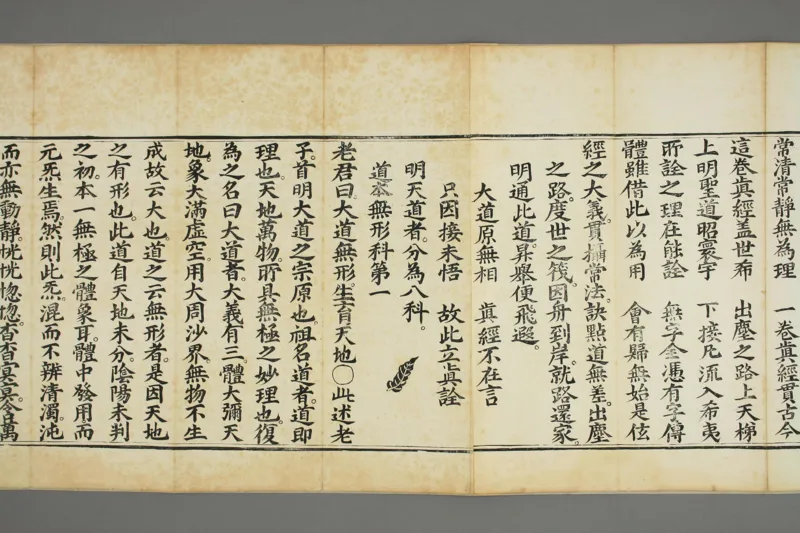 常清常靜無為理　一卷眞經貫古今
這卷眞經蓋世希　出塵之路上天梯
上明聖道昭寰宇　下接凡流入希夷
所詮之理在能詮　無字全憑有字傳
體雖借此以為用　會有歸無始是玄
經之大義。貫攝常法。訣點道無差。出塵
之路。度世之筏。因舟到岸。就路還家。
明通此道。昇舉便飛遐。
大道原無相　眞經不在言
只因接未悟　故此立眞詮
明天道者。分為八科。
道本無形科第一
老君曰。大道無形。生育天地〇此述老
子。首明大道之宗原也。祖名道者。道即
理也。天地萬物。所具無極之妙理也。復
為之名曰大道者。大義有三。體大彌天
地。象大滿虛空。用大周沙界。無物不生
成。故云大也。道之云無形者。是因天地
之有形也。此道自天地未分。陰陽未判
之初。本一無極之體象耳。體中發用而
元炁生焉。然則此炁。混而不辨清濁。沌
而亦無動靜。恍恍惚惚。杳杳冥冥。含萬